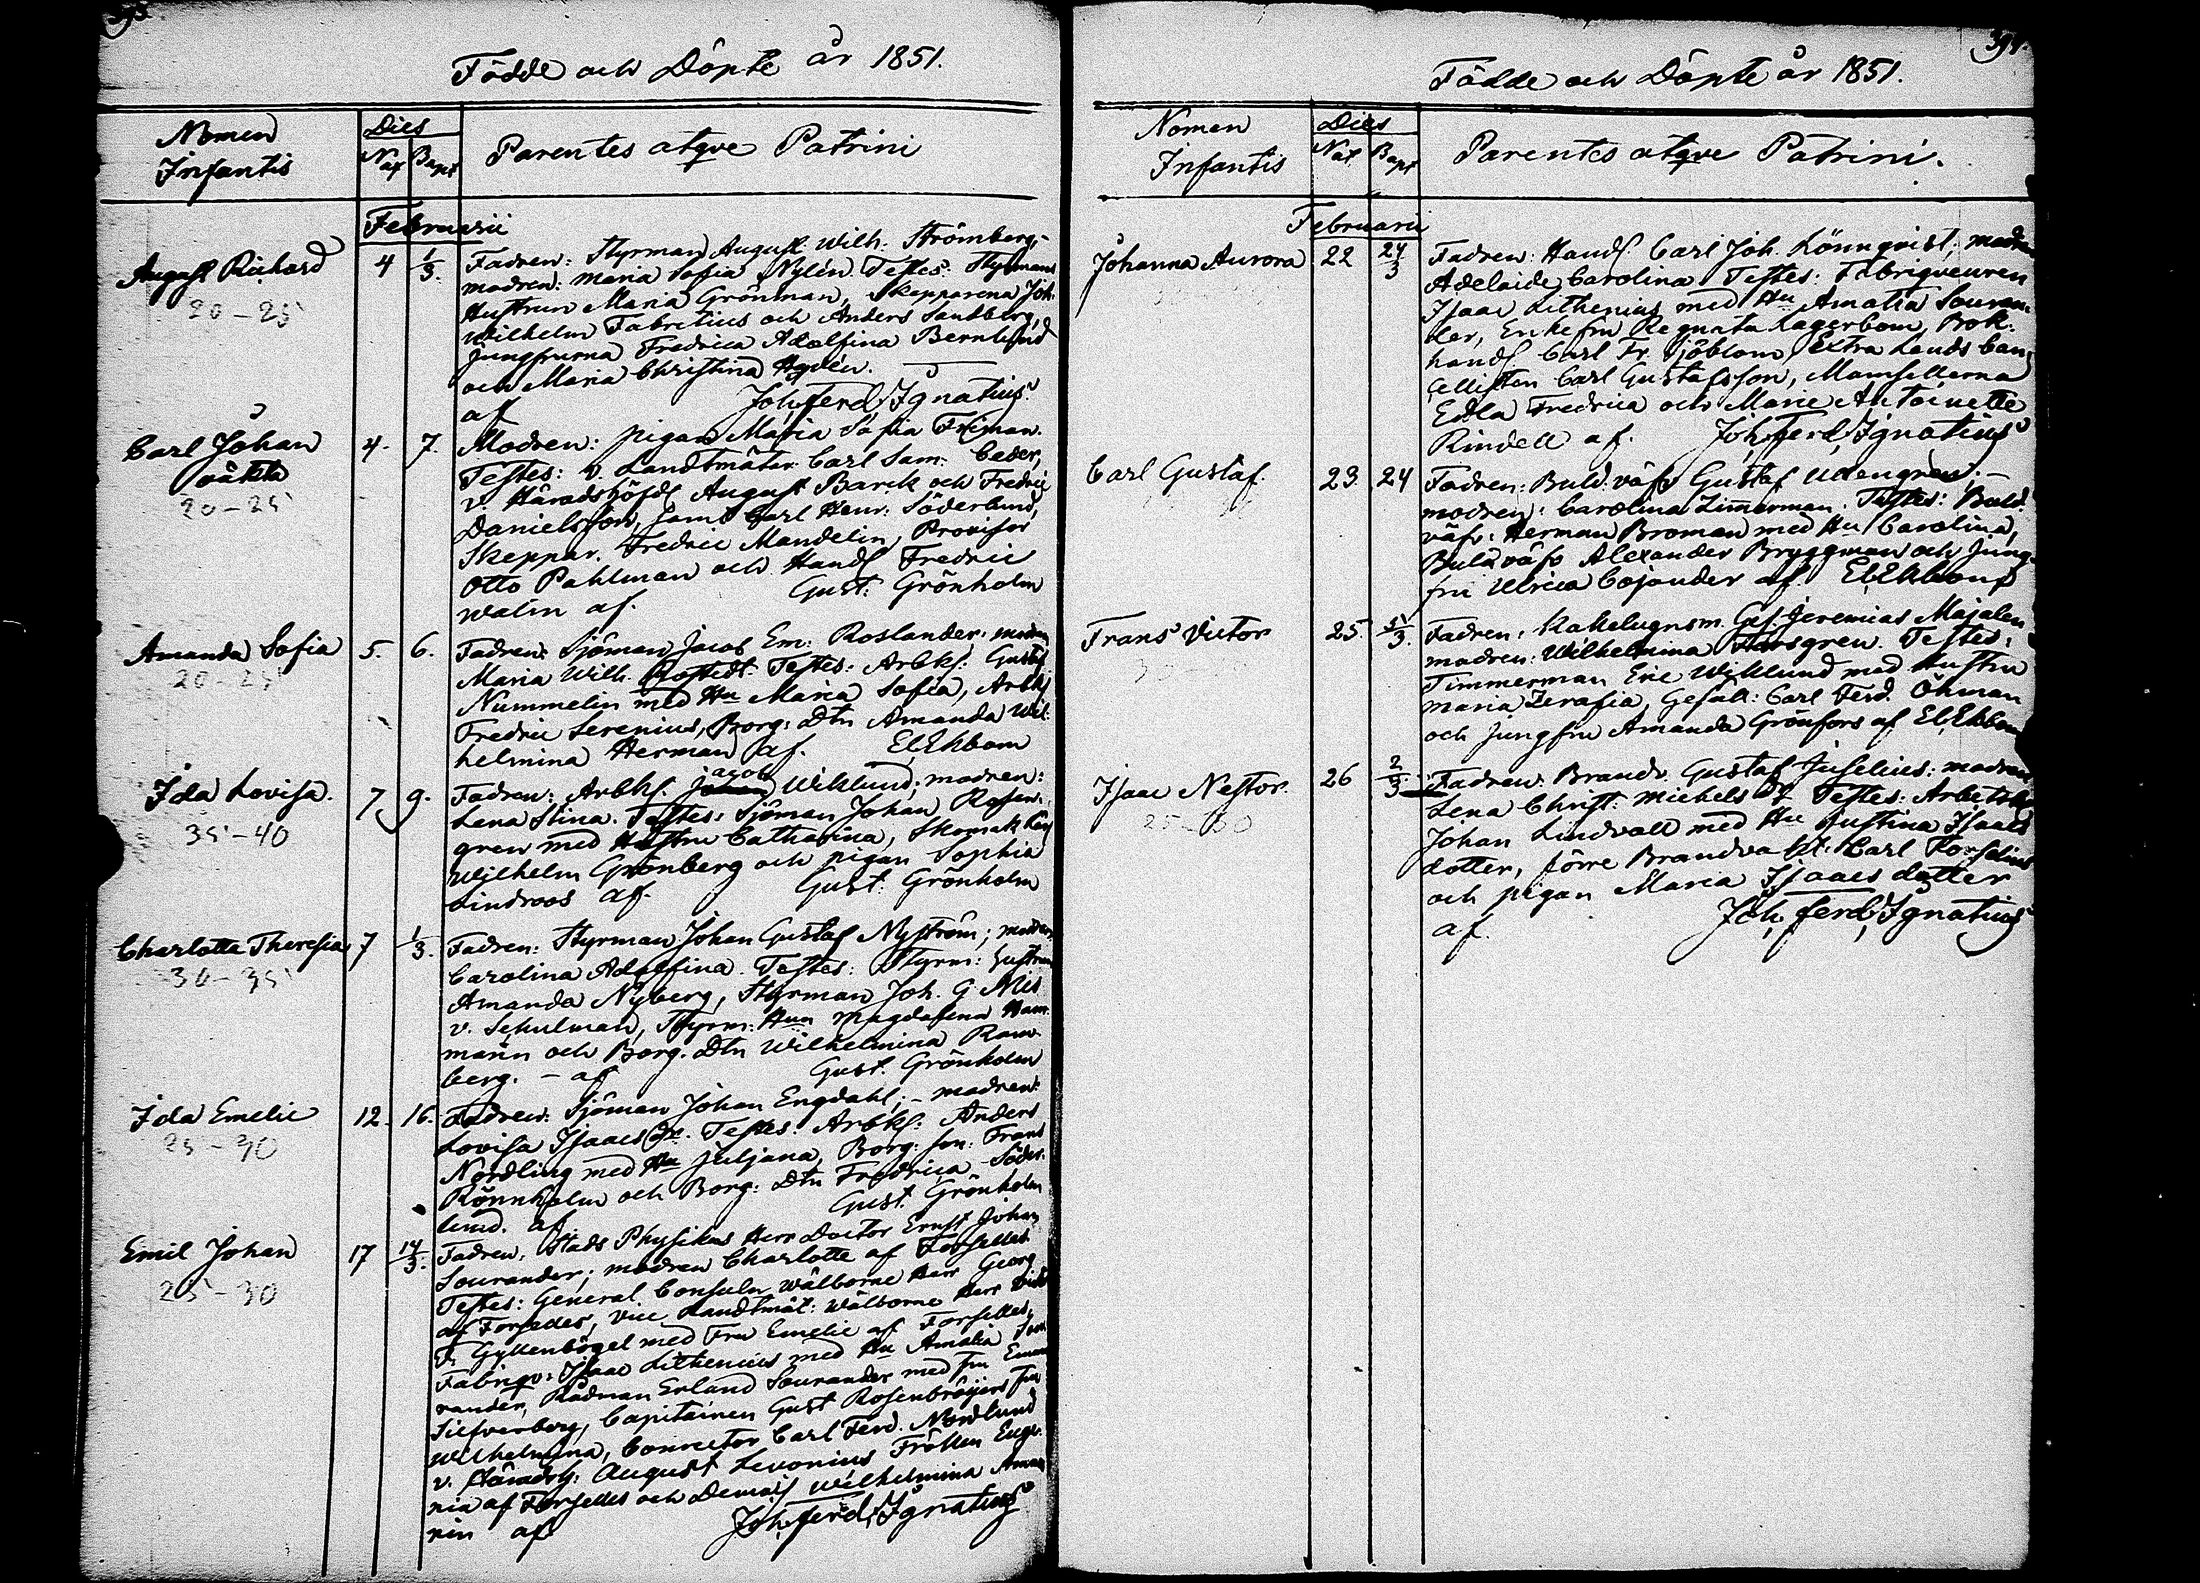 393.
Födde och Döpte år 1851.
Nomen Infantis
Dies
Nat Bapt
Parentes atqve Patrini
Februarii
August Richard 4 1/3.
20-25
Fadren: Styrman August Wilh. Strömberg,
modren: Maria Sofia Nylén. Testes: Styrmans
Hustrun Maria Grönman, Skepparena Joh.
Wilhelm Fabritius och Anders Sandberg,
Jungfrurna Fredrica Adolfina Bernlund
och Maria Christina Hydén.
af Joh. Ferd. Ignatius
Carl Johan 4. 7.
oäkta
20-25
Modren: pigan Maria Sofia Friman.
Testes: v. Landtmätar. Carl Sam. Ceder,
v. Häradshöfd August Barck och Fredric
Danielsson, samt Carl Henr. Söderlund,
Skeppar. Fredric Mandelin, Provisor
Otto Pahlman och Handl Fredric
Walin af. Gust. Grönholm
Amanda Sofia 5. 6.
20-25
Fadren: Sjöman Jacob Em. Roslander, modren
Maria Wilh. Rostedt. Testes: Arbks. Gustaf
Nummelin med Hu Maria Sofia, Arbks
Fredric Serenius, Borg: Dtn Amanda Wil-
helmina Herman af. El Ekbom
Ida Lovisa. 7 9.
35-40
Fadren: Arbks. Jacob Wiklund, modren:
Lena Stina. Testes: Sjöman Johan Rosen-
gren med Hustru Catharina, Skomak
Wilhelm Grönberg och pigan Sophia
Lindroos af. Gust. Grönholm
Charlotta Theresia 7 1/3.
30-35
Fadren: Styrman Johan Gustaf Nyström; modren
Carolina Adolfina. Testes: Styrm: hustrun
Amanda Nyberg, Styrman Joh. G. Nis
v. Schulman, Styrm: Hun Magdalena Ham-
marin och Borg. Dtn Wilhelmina Ram-
berg. - af Gust. Grönholm
Ida Emelie 12. 16.
25-30
Fadren: Sjöman Johan Engdahl; - modren:
Lovisa Isaacs Dr. Testes: Arbks: Anders
Nordling med Hu Juljana, Borg: son: Frans
Rönnholm och Borg: Dtn Fredrica Söder-
lund. af Gust. Grönholm
Emil Johan 17 14/3.
25-30
Fadren, Stads Physikus Herr Doctor Ernst Johan
Sourander; modren Charlotte af Forselles
Testes: General Consuln Wälborne Herr Georg
af Forselles, vice Landtmät: Wälborne Herr
F. Gyllenbögel med Fru Emelie af Forselles,
Fabriqv: Isaac Lithenius med Hu Amalia Sou-
rander, Rådman Erland Sourander med fru
Silfverberg, Capitainen Gust Rosenbröijers fru
Wilhelmina, Conrector Carl Ferd. Nordlund
v. Häradsh: August Levonius Fröken Euge-
nia af Forselles och Demois Wilhelmina
nin af Joh. Ferd. Ignatius
394.
Födde och Döpte år 1851.
Nomen Infantis
Dies
Nat Bapt
Parentes atqve Patrini.
Februarii
Johanna Aurora 22 24/3
Fadren: Handl Carl Joh. Lönnqvist, modren
Adelaide Carolina Testes: Fabriqveuren
Isaac Lithenius med Hu Amalia Souran-
der, Enkefru Regnata Lagerbom, Bok-
handl Carl Fr. Sjöblom, Extra Lands Can-
cellisten Carl Gustafsson, Mamsellerna
Edla Fredrica och Marie Antoinette
Rindell af. Joh. Ferd. Ignatius
Carl Gustaf. 23 24
Fadren: Buld: väfv Gustaf Udengren. -
modren: Carolina Zimmerman. Testes: Buld:
väfv: Herman Broman med Hu Carolina,
Buldväfv Alexander Bryggman och Jung-
fru Ulrica Cojander af. El Ekbom
Frans Victor 25. 5/3.
Fadren: Kakelugnsm. Ges. Jeremias Majalen
modren: Wilhelmina Forsgren. Testes:
Timmerman Eric Wiklund med Hustru
Maria Serafia, Gesäll: Carl Ferd. Öhman
och jungfru Amanda Grönfors af El Ekbom
Isaac Nestor. 26 2/3.
25-30
Fadren Brandv. Gustaf Juselius: modren
Lena Christ: Michels Dr Testes: Arbetsk
Johan Lindvall med Hu Justina Isaacs
dotter, förre Brandvakt. Carl Forselius
och pigan Maria Isaacs dotter
af. Joh. Ferd. Ignatius